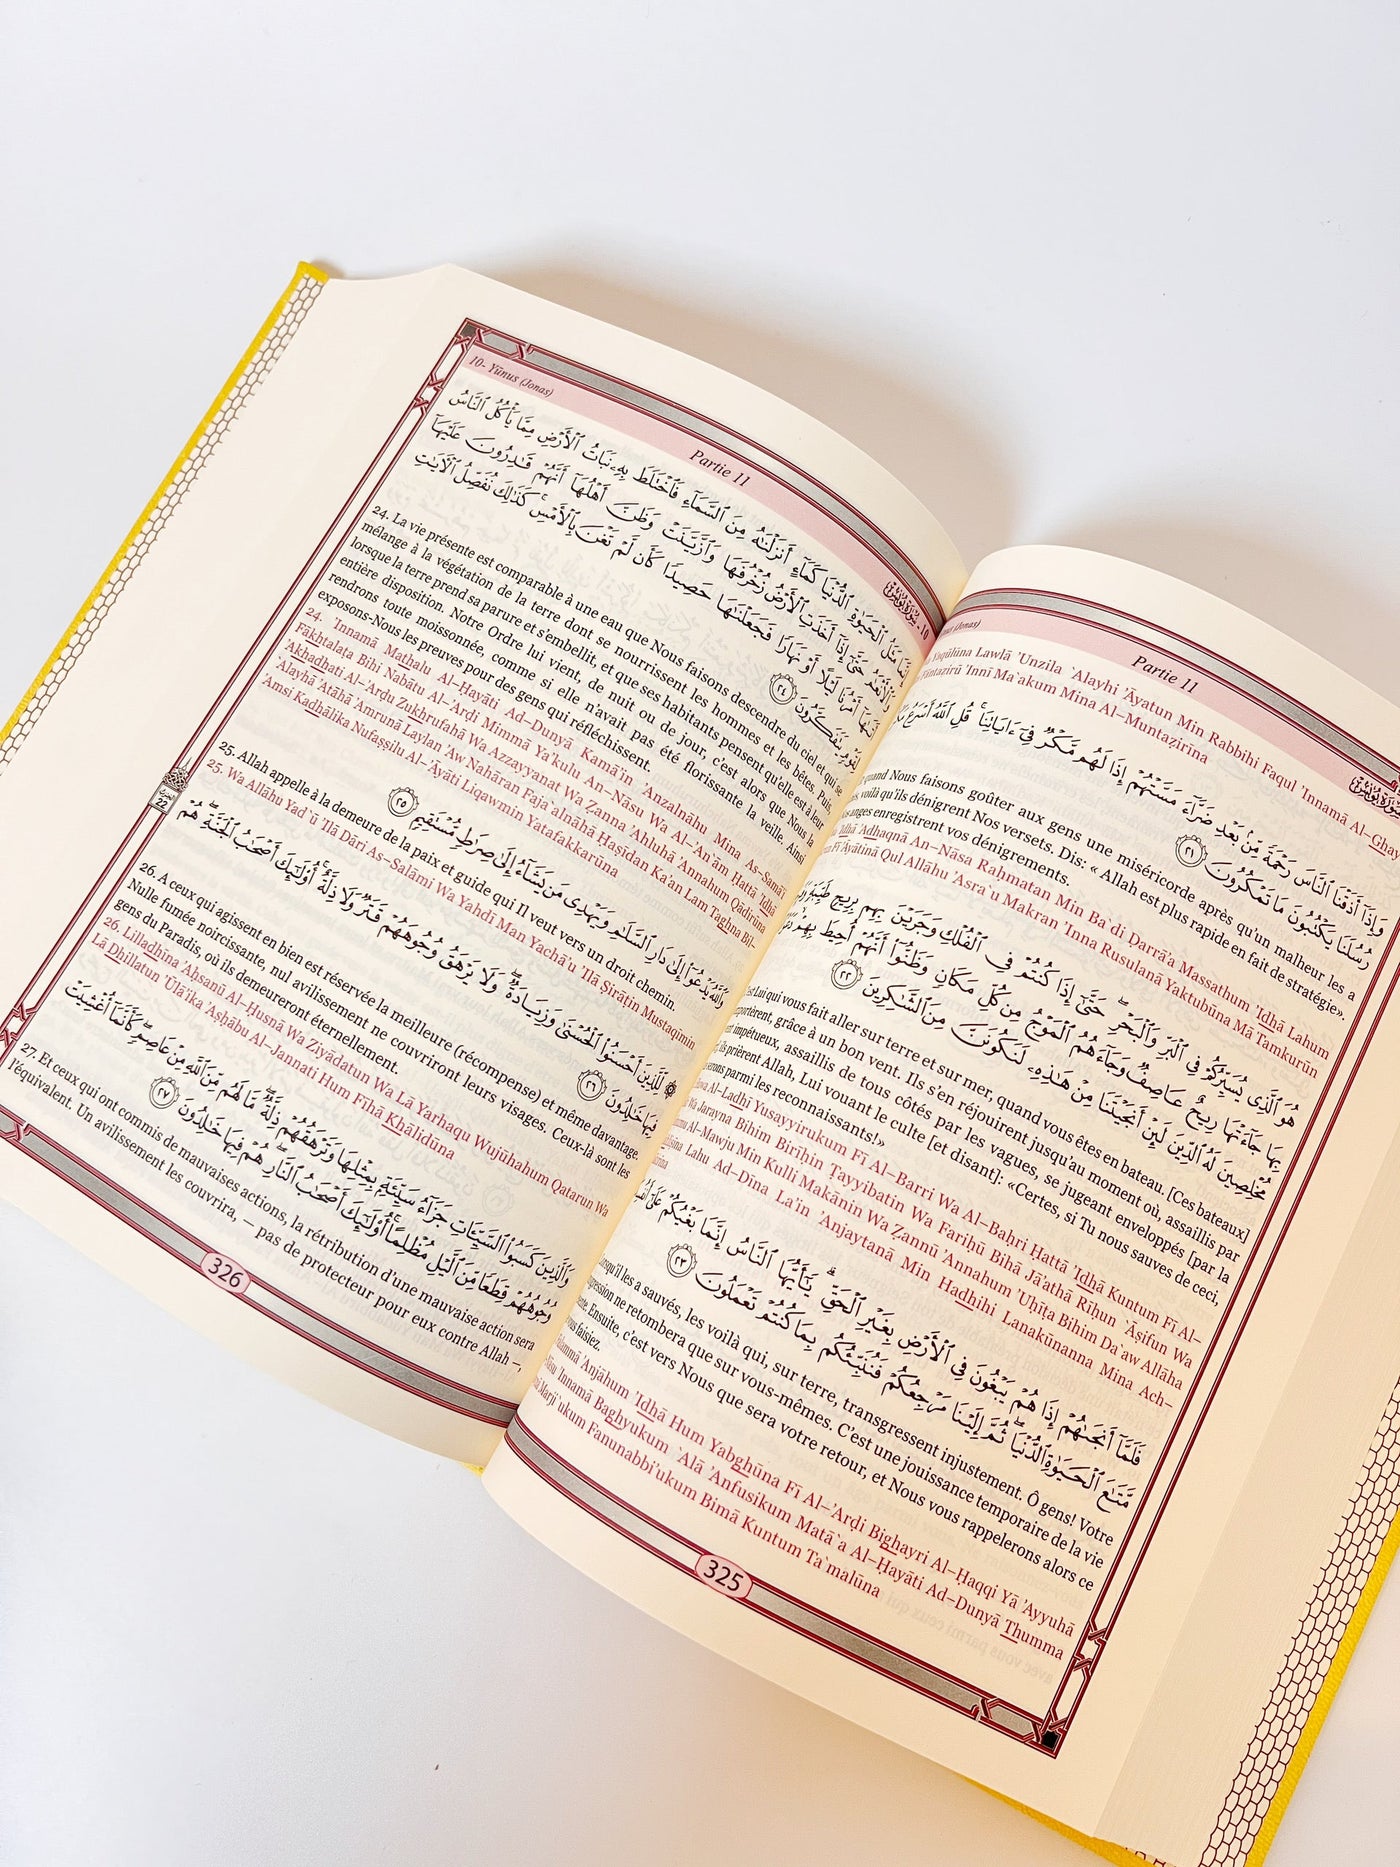 (Jonas)
Partie 11
Yaqūlūna Lawlā 'Unzila `Alayhi 'Āyatun Min Rabbihi Faqul 'Innamā Al–Ghay
Fāntažirū 'Innī Ma`akum Mina Al–Muntažirīna
وَإِذَآ أَذَقْنَا ٱلنَّاسَ رَحْمَةً مِّنۢ بَعْدِ ضَرَّآءَ مَسَّتْهُمْ إِذَا لَهُم مَّكْرٌ فِىٓ ءَايَاتِنَا ۚ قُلِ ٱللَّهُ أَسْرَعُ
رُسُلَنَا يَكْتُبُونَ مَا تَمْكُرُونَ ٢١
quand Nous faisons goûter aux gens une miséricorde après qu'un malheur les a
voilà qu'ils dénigrent Nos versets. Dis: « Allah est plus rapide en fait de stratégie».
anges enregistrent vos dénigrements.
'Idhā 'Adhaqnā An–Nāsa Raḥmatan Min Ba`di Ḍarrā'a Massathum 'Idhā Lahum
Fī 'Āyātinā Qul Allāhu 'Asra`u Makran 'Inna Rusulanā Yaktubūna Mā Tamkurūn
هُوَ ٱلَّذِى يُسَيِّرُكُمْ فِى ٱلْبَرِّ وَٱلْبَحْرِ ۖ حَتَّىٰٓ إِذَا كُنتُمْ فِى ٱلْفُلْكِ وَجَرَيْنَ بِهِم بِرِيحٍ طَيِّبَةٍ
بِهَا جَآءَتْهَا رِيحٌ عَاصِفٌ وَجَآءَهُمُ ٱلْمَوْجُ مِن كُلِّ مَكَانٍ وَظَنُّوٓا۟ أَنَّهُمْ أُحِيطَ بِهِمْ ۙ
مُخْلِصِينَ لَهُ ٱلدِّينَ لَئِنْ أَنجَيْتَنَا مِنْ هَٰذِهِۦ لَنَكُونَنَّ مِنَ ٱلشَّٰكِرِينَ ٢٢
Lui qui vous fait aller sur terre et sur mer, quand vous êtes en bateau. [Ces bateaux]
emportèrent, grâce à un bon vent. Ils s'en réjouirent jusqu'au moment où, assaillis par
vent impétueux, assaillis de tous côtés par les vagues, se jugeant enveloppés [par la
ils prièrent Allah, Lui vouant le culte [et disant]: «Certes, si Tu nous sauves de ceci,
parmi les reconnaissants!»
Al–Ladhī Yusayyirukum Fī Al–Barri Wa Al–Baḥri Ḥattá 'Idhā Kuntum Fī Al–
Wa Jarayna Bihim Birīḥin Ṭayyibatin Wa Fariḥū Bihā Jā'athā Rīḥun `Āşifun Wa
Al–Mawju Min Kulli Makānin Wa Žannū 'Annahum 'Uḥīţa Bihim Da`aw Allāha
Lahu Ad–Dīna La'in 'Anjaytanā Min Hadhihi Lanakūnanna Mina Ach–
فَلَمَّآ أَنجَىٰهُمْ إِذَا هُمْ يَبْغُونَ فِى ٱلْأَرْضِ بِغَيْرِ ٱلْحَقِّ ۗ يَٰٓأَيُّهَا ٱلنَّاسُ إِنَّمَا بَغْيُكُمْ عَلَىٰٓ
مَّتَٰعَ ٱلْحَيَوٰةِ ٱلدُّنْيَا ۖ ثُمَّ إِلَيْنَا مَرْجِعُكُمْ فَنُنَبِّئُكُم بِمَا كُنتُمْ تَعْمَلُونَ ٢٣
les a sauvés, les voilà qui, sur terre, transgressent injustement. Ô gens! Votre
ne retombera que sur vous-mêmes. C'est une jouissance temporaire de la vie
Ensuite, c'est vers Nous que sera votre retour, et Nous vous rappelerons alors ce
faisiez.
'Anjāhum 'Idhā Hum Yabghūna Fī Al–'Arḍi Bighayri Al–Ḥaqqi Yā 'Ayyuhā
'Innamā Baghyukum `Alá 'Anfusikum Matā`a Al–Ḥayāti Ad–Dunyā Thumma
Marji`ukum Fanunabbi'ukum Bimā Kuntum Ta`malūna
325
10- Yūnus (Jonas)
Partie 11
10 -
إِنَّمَا مَثَلُ ٱلْحَيَوٰةِ ٱلدُّنْيَا كَمَآءٍ أَنزَلْنَٰهُ مِنَ ٱلسَّمَآءِ فَٱخْتَلَطَ بِهِۦ نَبَاتُ ٱلْأَرْضِ مِمَّا يَأْكُلُ ٱلنَّاسُ
وَٱلْأَنْعَٰمُ حَتَّىٰٓ إِذَآ أَخَذَتِ ٱلْأَرْضُ زُخْرُفَهَا وَٱزَّيَّنَتْ وَظَنَّ أَهْلُهَآ أَنَّهُمْ قَٰدِرُونَ عَلَيْهَآ
أَتَىٰهَآ أَمْرُنَا لَيْلًا أَوْ نَهَارًا فَجَعَلْنَٰهَا حَصِيدًا كَأَن لَّمْ تَغْنَ بِٱلْأَمْسِ ۚ كَذَٰلِكَ نُفَصِّلُ ٱلْءَايَٰتِ
لِقَوْمٍ يَتَفَكَّرُونَ ٢٤
24. La vie présente est comparable à une eau que Nous faisons descendre du ciel et qui se
mélange à la végétation de la terre dont se nourrissent les hommes et les bêtes. Puis,
lorsque la terre prend sa parure et s'embellit, et que ses habitants pensent qu'elle est à leur
entière disposition. Notre Ordre lui vient, de nuit ou de jour, c'est alors que Nous la
rendrons toute moissonnée, comme si elle n'avait pas été florissante la veille. Ainsi
exposons-Nous les preuves pour des gens qui réfléchissent.
24. 'Innamā Mathalu Al–Ḥayāti Ad–Dunyā Kamā'in 'Anzalnāhu Mina As–Samā'i
Fākhtalaţa Bihi Nabātu Al–'Arḍi Mimmā Ya'kulu An–Nāsu Wa Al–'An`ām Ḥattá 'Idhā
'Akhadhati Al–'Arḍu Zukhrufahā Wa Azzayyanat Wa Žanna 'Ahluhā 'Annahum Qādirūna
`Alayhā 'Atāhā 'Amrunā Laylan 'Aw Nahāran Faja`alnāhā Ḥaşīdan Ka'an Lam Taghna Bil–
'Amsi Kadhālika Nufaşşilu Al–'Āyāti Liqawmin Yatafakkarūna
وَٱللَّهُ يَدْعُوٓا۟ إِلَىٰ دَارِ ٱلسَّلَٰمِ وَيَهْدِى مَن يَشَآءُ إِلَىٰ صِرَٰطٍ مُّسْتَقِيمٍ ٢٥
25. Allah appelle à la demeure de la paix et guide qui Il veut vers un droit chemin.
25. Wa Allāhu Yad`ū 'Ilá Dāri As–Salāmi Wa Yahdī Man Yachā'u 'Ilá Şirāţin Mustaqīmin
لِّلَّذِينَ أَحْسَنُوا۟ ٱلْحُسْنَىٰ وَزِيَادَةٌ ۖ وَلَا يَرْهَقُ وُجُوهَهُمْ قَتَرٌ وَلَا ذِلَّةٌ ۚ أُو۟لَٰٓئِكَ أَصْحَٰبُ ٱلْجَنَّةِ ۖ هُمْ
فِيهَا خَٰلِدُونَ ٢٦
26. A ceux qui agissent en bien est réservée la meilleure (récompense) et même davantage.
Nulle fumée noircissante, nul avilissement ne couvriront leurs visages. Ceux-là sont les
gens du Paradis, où ils demeureront éternellement.
26. Lilladhīna 'Aḥsanū Al–Ḥusná Wa Ziyādatun Wa Lā Yarhaqu Wujūhahum Qatarun Wa
Lā Dhillatun 'Ūlā'ika 'Aşḥābu Al–Jannati Hum Fīhā Khālidūna
وَٱلَّذِينَ كَسَبُوا۟ ٱلسَّيِّـَٔاتِ جَزَآءُ سَيِّئَةٍۭ بِمِثْلِهَا وَتَرْهَقُهُمْ ذِلَّةٌ ۖ مَّا لَهُم مِّنَ ٱللَّهِ مِنْ عَاصِمٍ ۖ كَأَنَّمَآ أُغْشِيَتْ
وُجُوهُهُمْ قِطَعًا مِّنَ ٱلَّيْلِ مُظْلِمًا ۚ أُو۟لَٰٓئِكَ أَصْحَٰبُ ٱلنَّارِ ۖ هُمْ فِيهَا خَٰلِدُونَ ٢٧
27. Et ceux qui ont commis de mauvaises actions, la rétribution d'une mauvaise action sera
l'équivalent. Un avilissement les couvrira, — pas de protecteur pour eux contre Allah –,
22
326